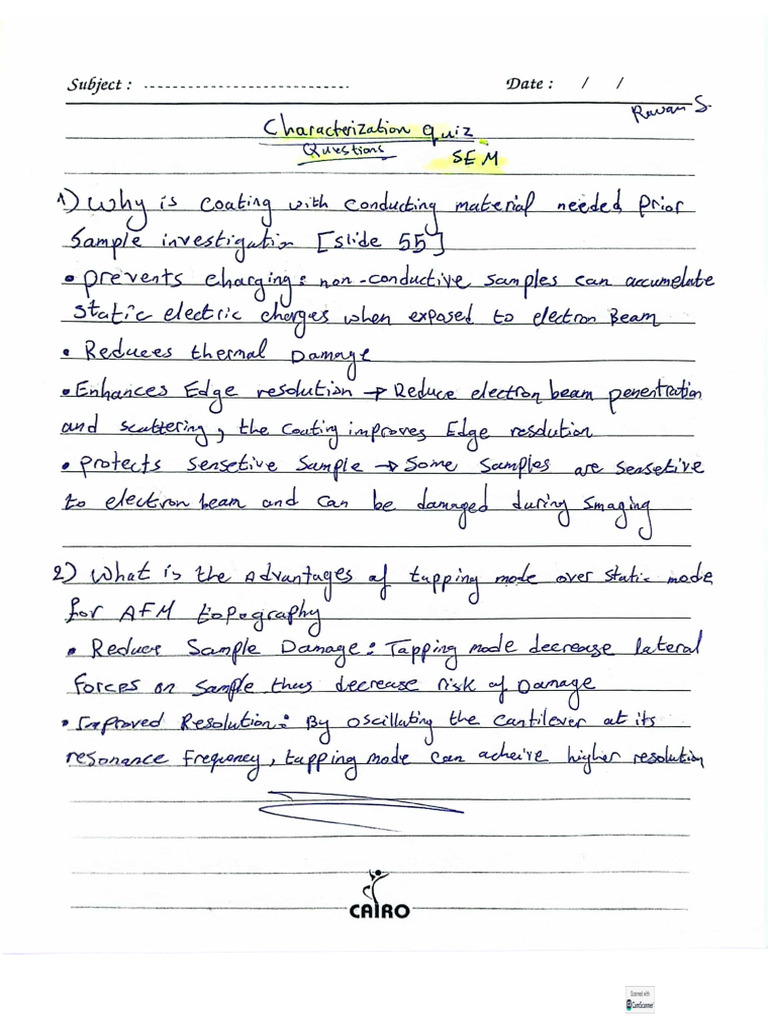 Subject : ............................
Date : / /
Rawan S.
Characterization quiz
Questions
SEM
1) Why is coating with conducting material needed prior
Sample investigation [slide 55]
• prevents charging: non-conductive samples can accumelate
static electric charges when exposed to electron Beam
• Reduces thermal Damage
• Enhances Edge resolution → Reduce electron beam penentration
and scattering, the coating improves Edge resolution
• protects sensetive Sample → Some samples are sensetive
to electron beam and can be damaged during Imaging
2) What is the Advantages of tapping mode over static mode
for AFM topography
• Reduce Sample Damage: Tapping mode decrease lateral
Forces on Sample thus decrease risk of Damage
• Improved Resolution: By oscillating the cantilever at its
resonance Frequency, tapping mode can acheive higher resolution
CAIRO
Scanned with
CamScanner